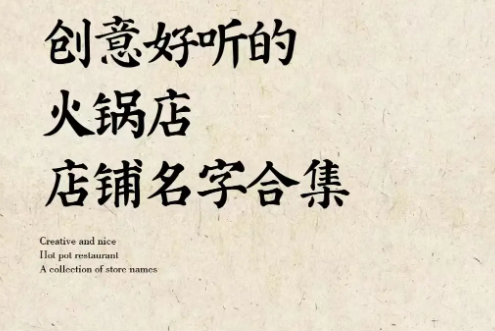 创意好听的
火锅店
店铺名字合集
Creative and nice
Hot pot restaurant
A collection of store names